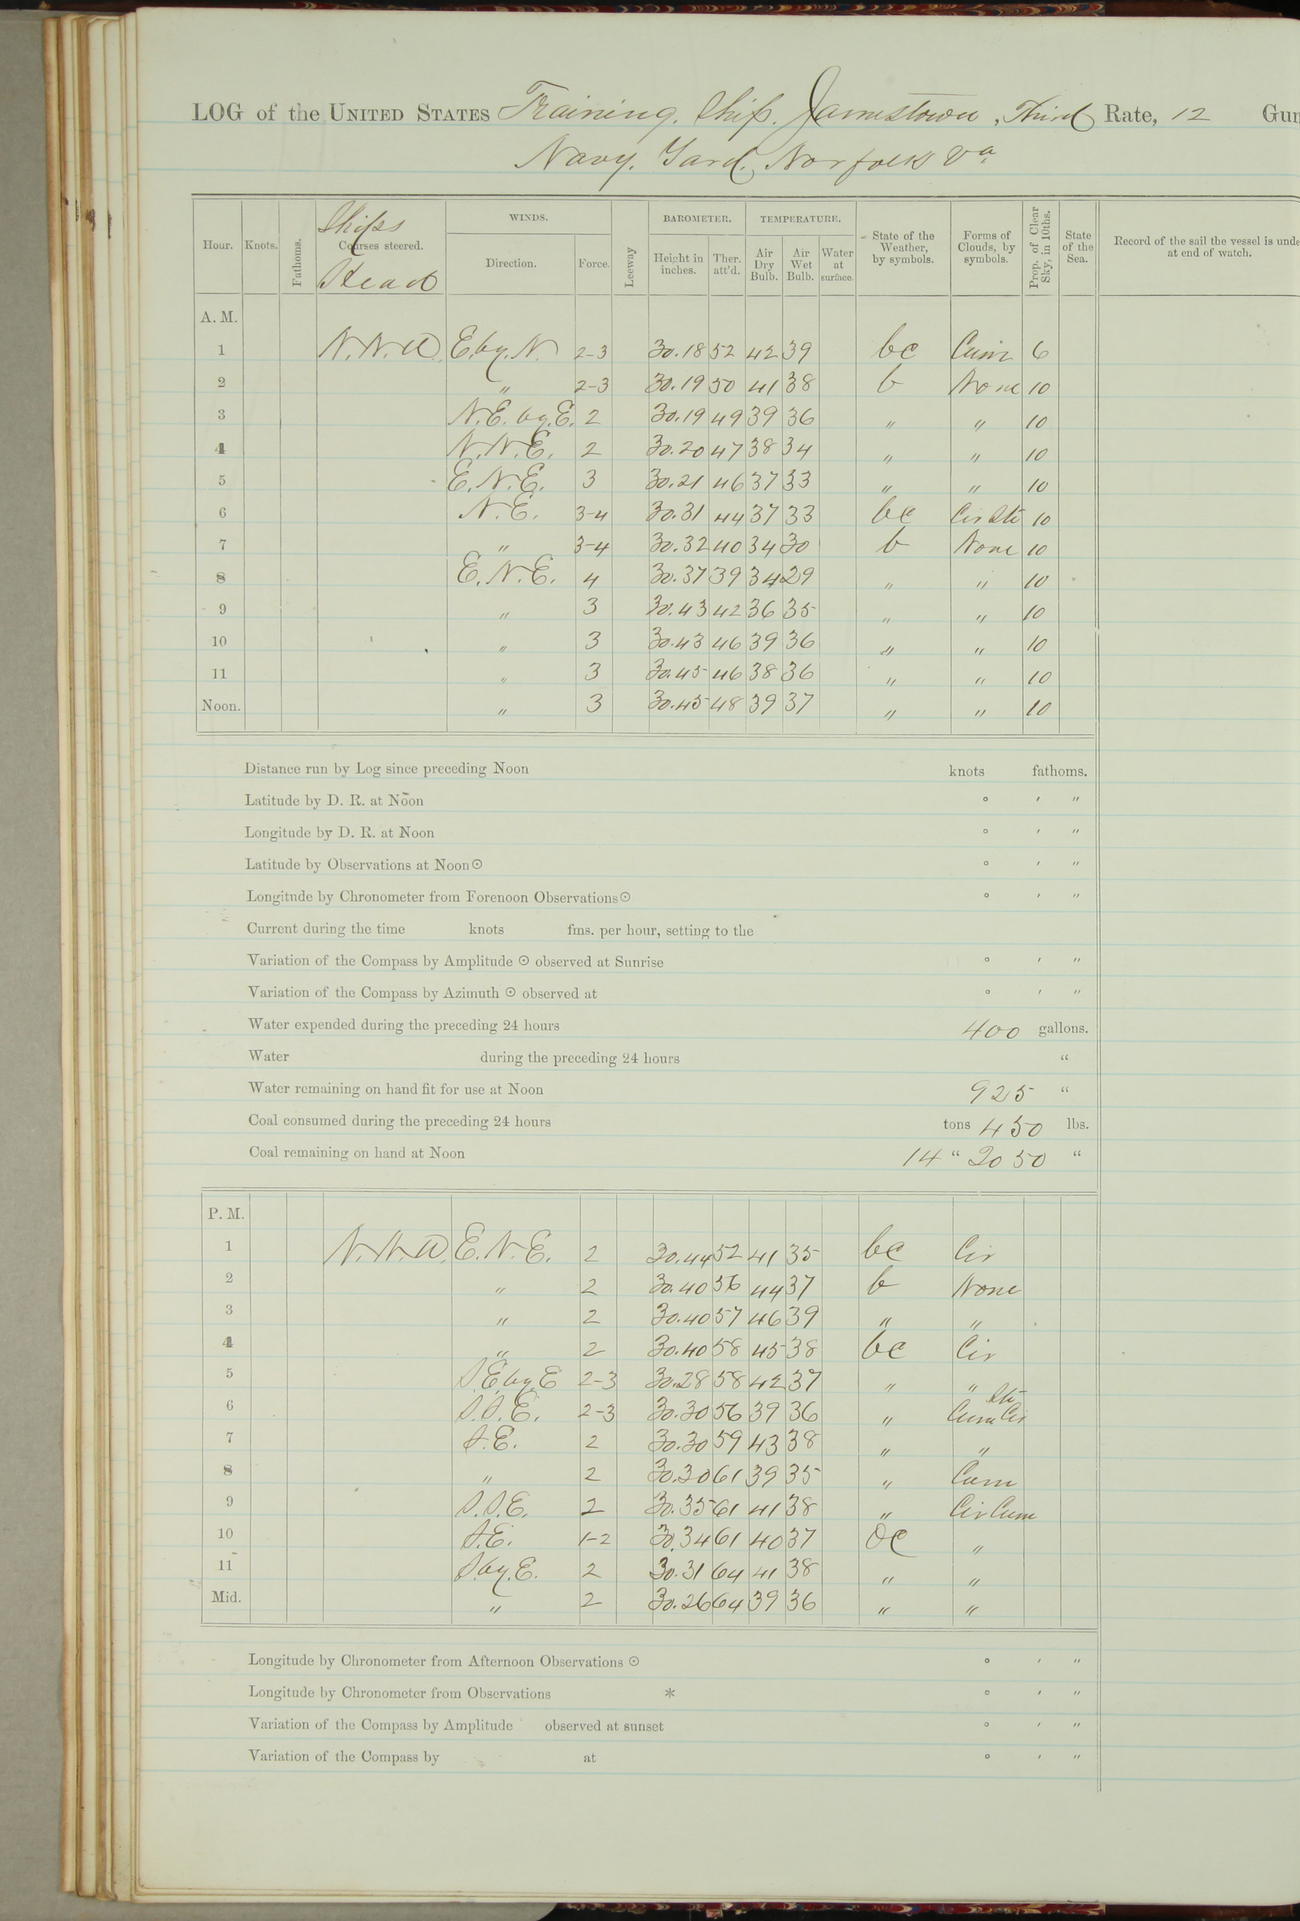 LOG of the UNITED STATES Training Ship Jamestown, Third Rate, 12 Gun
Navy Yard, Norfolk Va
Hour. Knots. Fathoms. Ships Courses steered. Head WINDS. Direction. Force. Leeway BAROMETER. Height in inches. Ther. att'd. TEMPERATURE. Air Dry Bulb. Air Wet Bulb. Water at surface. State of the Weather, by symbols. Forms of Clouds, by symbols. Prop. of Clear Sky, in 10ths. State of the Sea. Record of the sail the vessel is unde
at end of watch.
A. M.
1 N.N.W. E. by. N. 2-3 30.18 52 42 39 bc Cum 6
2 " 2-3 30.19 50 41 38 b None 10
3 N.E. by. E. 2 30.19 49 39 36 " " 10
4 N.N.E. 2 30.20 47 38 34 " " 10
5 E.N.E. 3 30.21 46 37 33 " " 10
6 N.E. 3-4 30.31 44 37 33 bc Cir Str 10
7 " 3-4 30.32 40 34 30 b None 10
8 E.N.E. 4 30.37 39 34 29 " " 10
9 " 3 30.43 42 36 35 " " 10
10 " 3 30.43 46 39 36 " " 10
11 " 3 30.45 46 38 36 " " 10
Noon. " 3 30.45 48 39 37 " " 10
Distance run by Log since preceding Noon knots fathoms.
Latitude by D. R. at Noon ° ′ ″
Longitude by D. R. at Noon ° ′ ″
Latitude by Observations at Noon ☉ ° ′ ″
Longitude by Chronometer from Forenoon Observations ☉ ° ′ ″
Current during the time knots fms. per hour, setting to the
Variation of the Compass by Amplitude ☉ observed at Sunrise ° ′ ″
Variation of the Compass by Azimuth ☉ observed at ° ′ ″
Water expended during the preceding 24 hours 400 gallons.
Water during the preceding 24 hours "
Water remaining on hand fit for use at Noon 925 "
Coal consumed during the preceding 24 hours tons 450 lbs.
Coal remaining on hand at Noon 14 " 2050 "
P. M.
1 N.N.W. E.N.E. 2 30.44 52 41 35 bc Cir
2 " 2 30.40 56 44 37 b None
3 " 2 30.40 57 46 39 " "
4 " 2 30.40 58 45 38 bc Cir
5 S.E. by E 2-3 30.28 58 42 37 " "
6 S.S.E. 2-3 30.30 56 39 36 " Cum Cir Str
7 S.E. 2 30.30 59 43 38 " "
8 " 2 30.30 61 39 35 " Cum
9 S.S.E. 2 30.35 61 41 38 " Cir Cum
10 S.E. 1-2 30.34 61 40 37 Oc "
11 S. by. E. 2 30.31 64 41 38 " "
Mid. " 2 30.26 64 39 36 " "
Longitude by Chronometer from Afternoon Observations ☉ ° ′ ″
Longitude by Chronometer from Observations * ° ′ ″
Variation of the Compass by Amplitude observed at sunset ° ′ ″
Variation of the Compass by at ° ′ ″